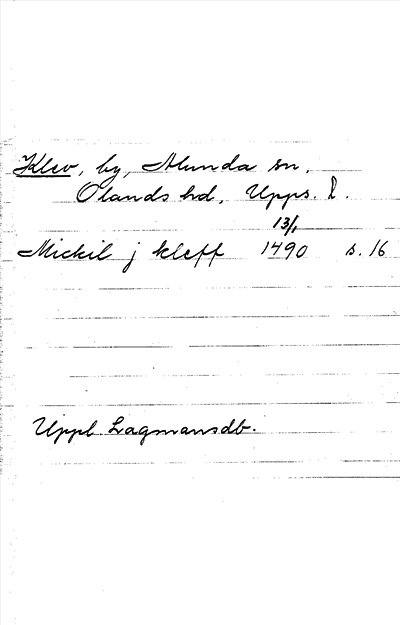 Klev, by, Alunda sn,
Olands hd, Upps. l.
13/1
Mickil j kleff 1490 s. 16
Uppl Lagmansdb.